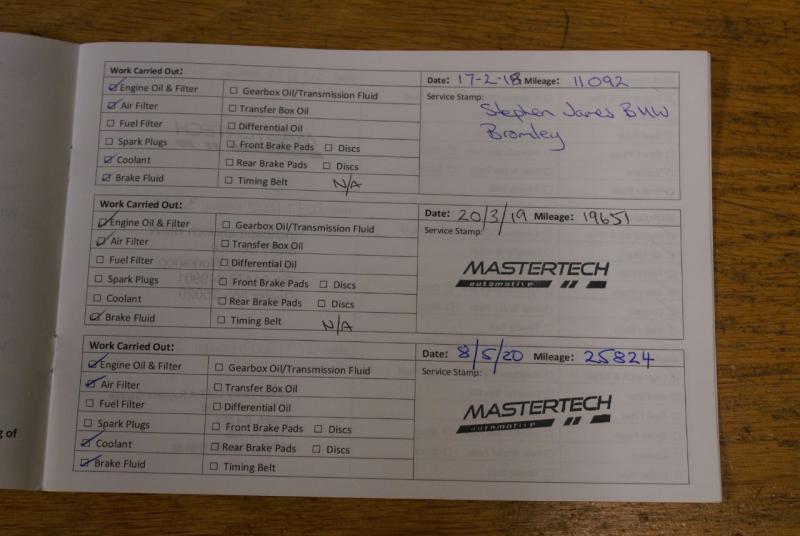 Work Carried Out:
Date: 17-2-18 Mileage: 11092
☑ Engine Oil & Filter ☐ Gearbox Oil/Transmission Fluid
Service Stamp:
Stephen James BMW
Bromley
☑ Air Filter ☐ Transfer Box Oil
☐ Fuel Filter ☐ Differential Oil
☐ Spark Plugs ☐ Front Brake Pads ☐ Discs
☑ Coolant ☐ Rear Brake Pads ☐ Discs
☑ Brake Fluid ☐ Timing Belt N/A
Work Carried Out:
Date: 20/3/19 Mileage: 19651
☑ Engine Oil & Filter ☐ Gearbox Oil/Transmission Fluid
Service Stamp:
MASTERTECH
automotive
☑ Air Filter ☐ Transfer Box Oil
☐ Fuel Filter ☐ Differential Oil
☐ Spark Plugs ☐ Front Brake Pads ☐ Discs
☐ Coolant ☐ Rear Brake Pads ☐ Discs
☑ Brake Fluid ☐ Timing Belt N/A
Work Carried Out:
Date: 8/5/20 Mileage: 25824
☑ Engine Oil & Filter ☐ Gearbox Oil/Transmission Fluid
Service Stamp:
MASTERTECH
automotive
☑ Air Filter ☐ Transfer Box Oil
☐ Fuel Filter ☐ Differential Oil
☐ Spark Plugs ☐ Front Brake Pads ☐ Discs
☑ Coolant ☐ Rear Brake Pads ☐ Discs
☑ Brake Fluid ☐ Timing Belt
g of